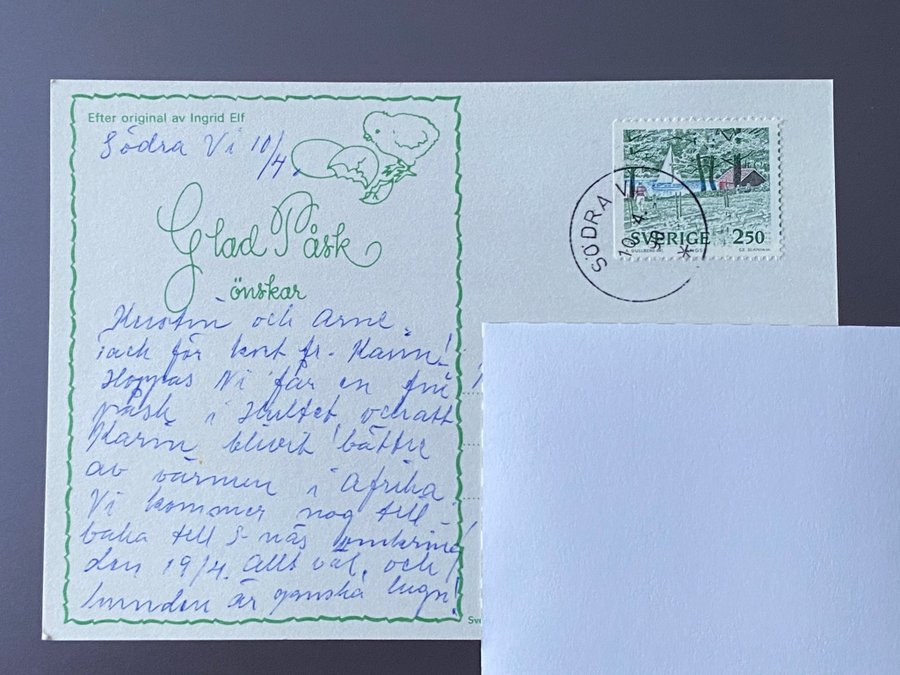 Efter original av Ingrid Elf
Södra Vi 10/4.
Glad Påsk
önskar
Kerstin och Arne.
Tack för kort fr. Karin!
Hoppas Ni får en fin
påsk i Hultet, och att
Karin blivit bättre
av värmen i Afrika
Vi kommer nog till
baka till S-näs omkring
den 19/4. Allt väl, och
hunden är ganska lugn!
SÖDRA VI
10. 4. 90
SVERIGE 250